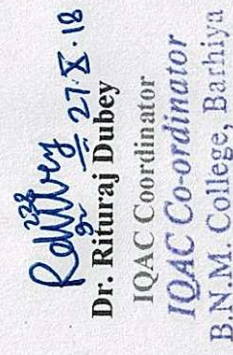 27.X.18
Dr. Rituraj Dubey
IQAC Coordinator
IQAC Co-ordinator
B.N.M. College, Barhiya